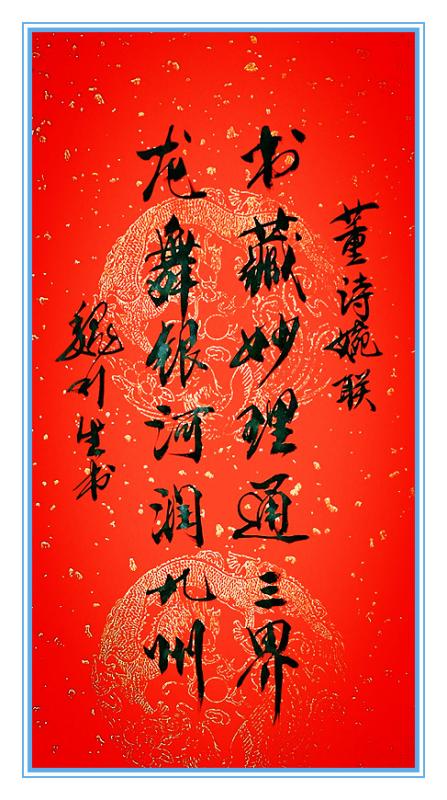 董诗婉联
书藏妙理通三界
龙舞银河润九州
魏升生书